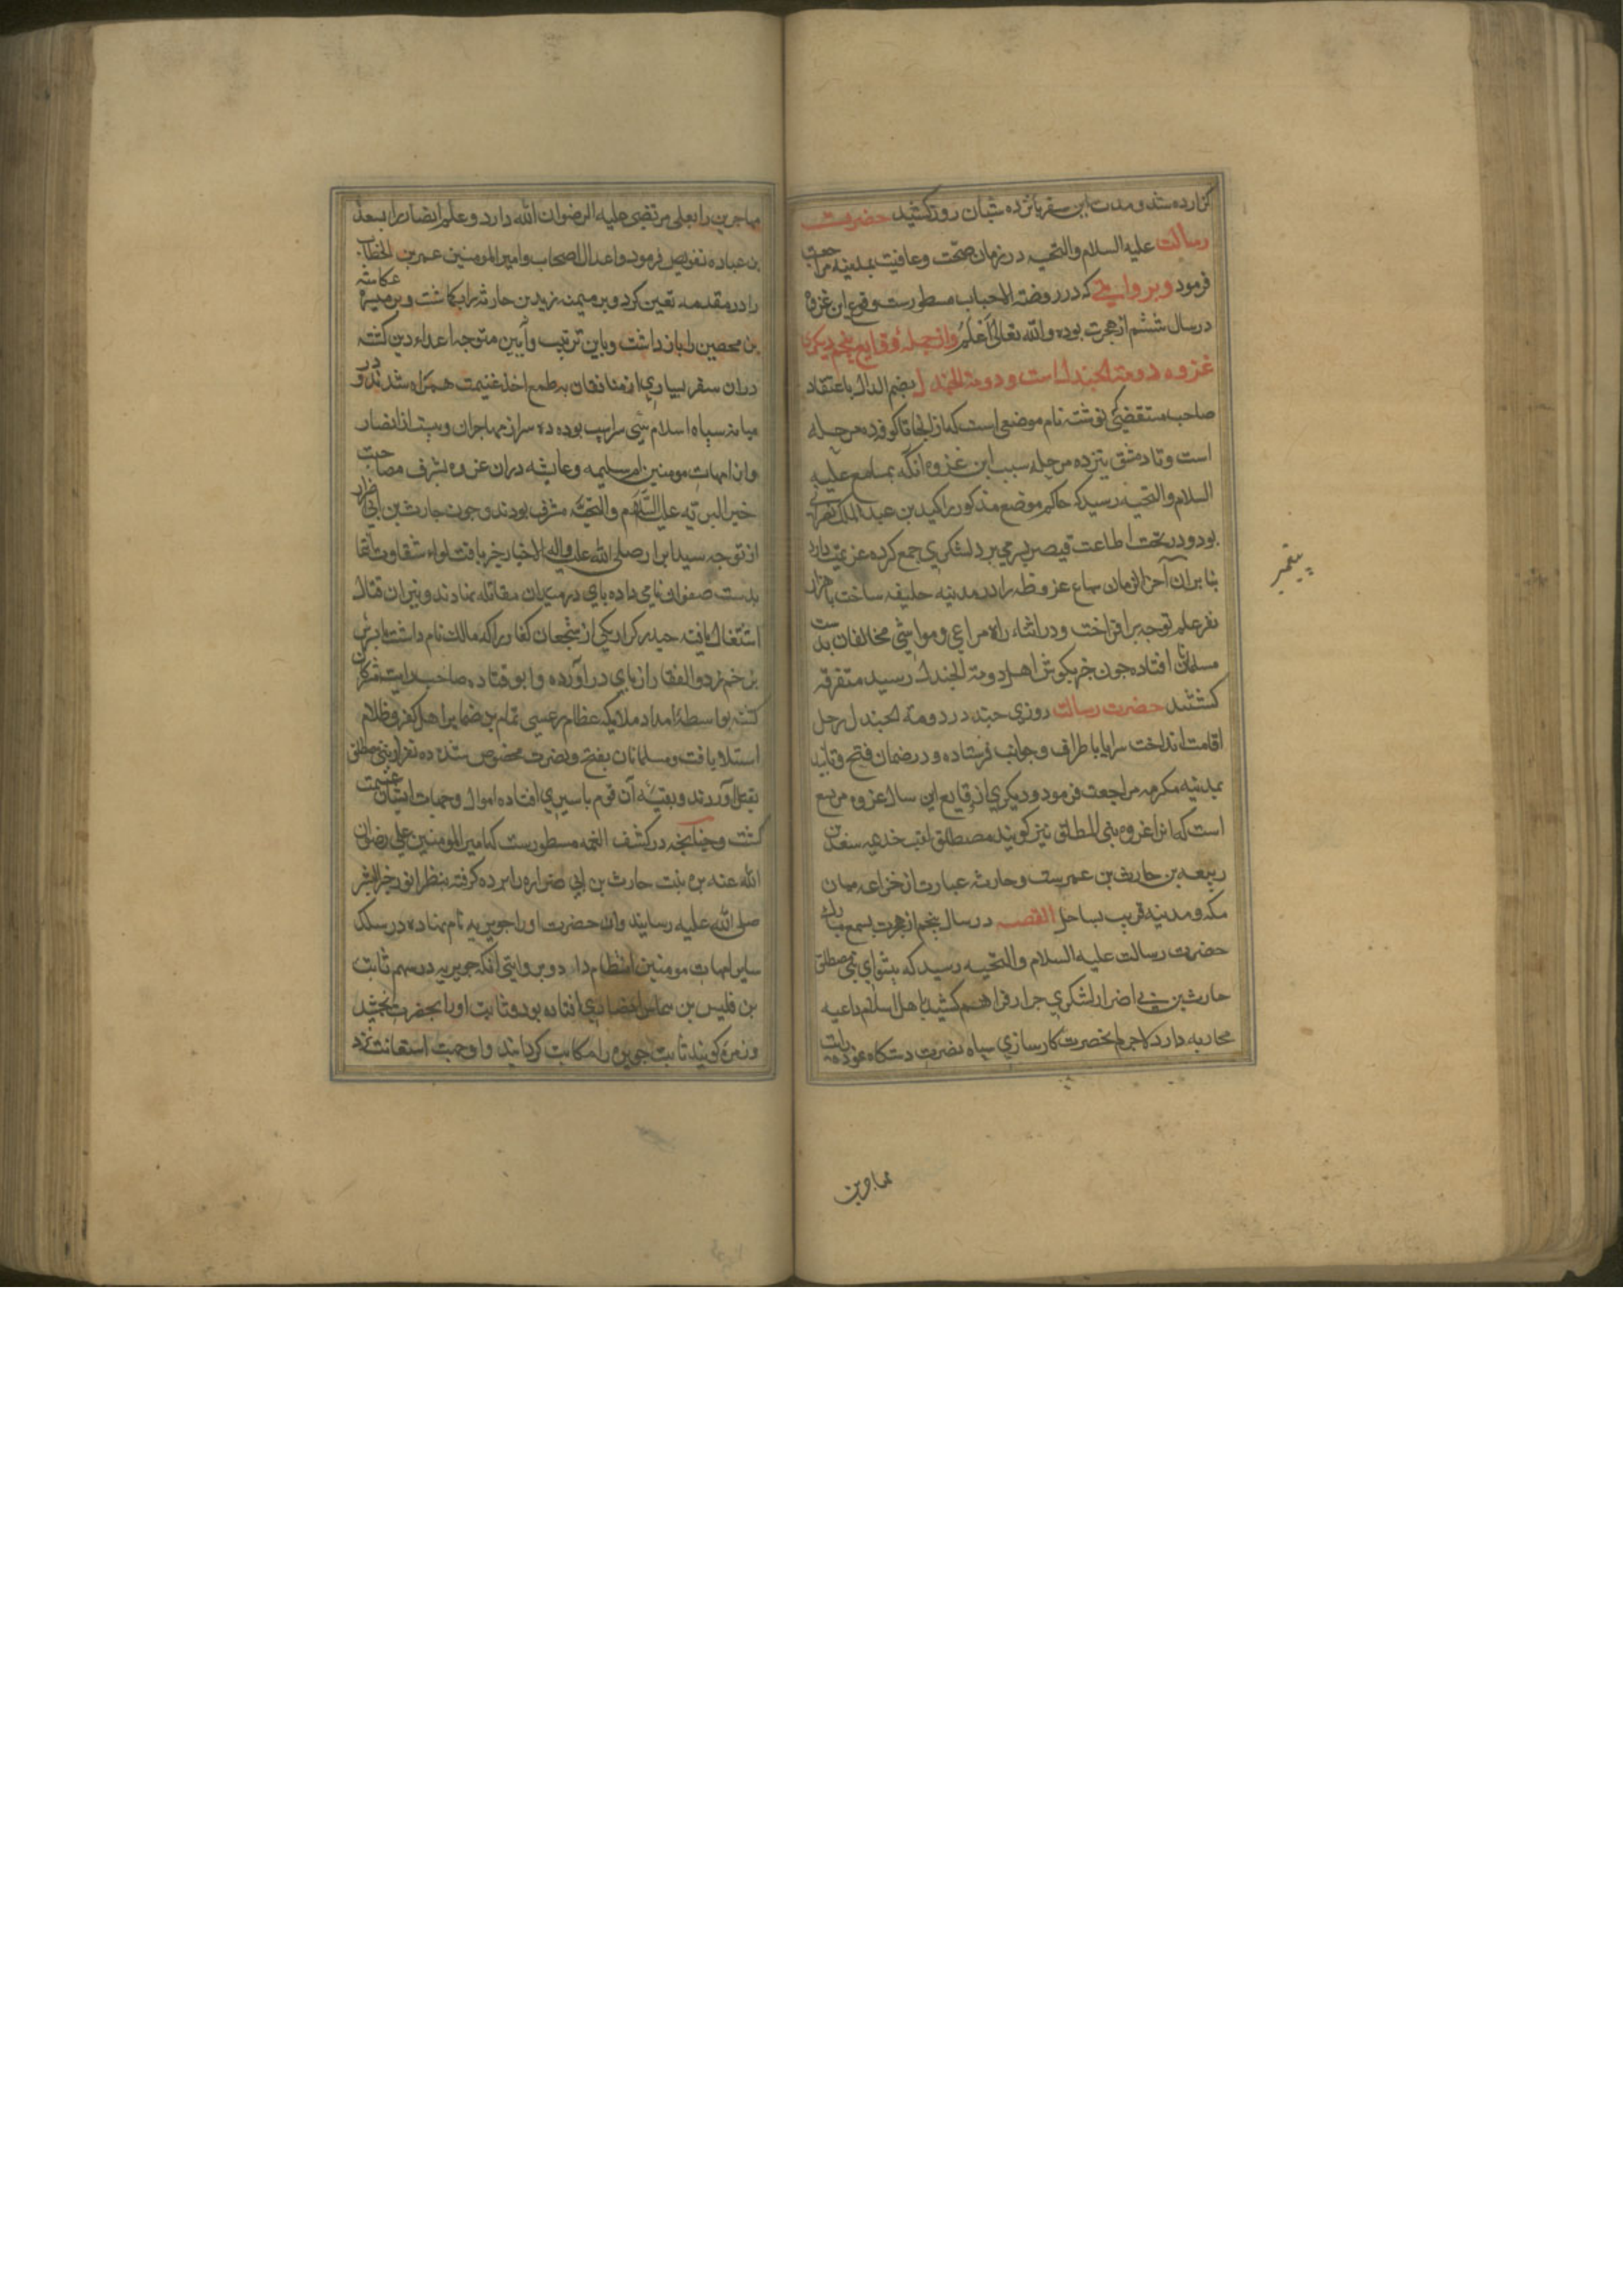 گزارده شد و مدت این سفر پانزده شبان روز کشید حضرت
رسالت علیه السلام والتحیه در زمان صحّت وعافیت بمدینه مراجعت
فرمود وبروایتی که در روضة الاحباب مسطورست وقوع این غزوه
در سال ششم از هجرت بوده والله تعالی اَعْلَمُ واز جملهٔ وقایع پنجم دیگری
غزوه دومة الجندل است ودومة الجندل بضم الدال باعتقاد
صاحب مستقضی نوشته نام موضعی است که از انجا تا کوفه ده مرحله
است وتا دمشق پنزده مرحله سبب این غزوه آنکه بمسامع علیه
السلام والتحیه رسید که حاکم موضع مذکور را کیدبن عبدالملک نصرانی
بود ودر تحت اطاعت قیصر بسر می برد لشکری جمع کرده عزیمت دارد
بنابران آخر الزمان سباع عزوطه را در مدینه خلیفه ساخت با هزار
نفر علم توجه برافراخت ودر اثناء راه مراعی ومواشی مخالفان بدست
مسلمانان افتاده چون خبر بکوش اهل دومة الجندل رسید متفرقه
کشتند حضرت رسالت روزی چند در دومة الجندل رحل
اقامت انداخت سرایا باطراف وجوانب فرستاده ودر ضمان فتح وتایید
بمدینه مکرمه مراجعت فرمود ودیکری از وقایع این سال غزوه مریسع
است که انرا غزوه بنی المطلق نیز کویند مصطلق لقب خدیمه سعدبن
ربیعه بن حارث بن عمرست وحارثه عبارت از خزاعه میان
مکه ومدینه قریب بساحل القصه در سال پنجم از هجرت بسمع مبارک
حضرت رسالت علیه السلام والتحیه رسید که پیشوای بنی مصطلق
حارث بن ابی اضرار لشکری جرار فراهم کشید با هل اسلام داعیه
محاربه دارد لاجرم آنحضرت کارسازی سپاه نصرت دستکاه نموده رایت
پیغمبر
مهاجرین
مهاجرین را بعلی مرتضی علیه الرضوان الله دارد وعلم انصار را بسعد
بن عباده تفویض فرمود واعدال اصحاب وامیر المومنین عمربن الخطاب
را در مقدمه تعین کرد وبر میمنه زیدبن حارثه را بکماشت وبر میسره عکاشه
بن محصین را باز داشت وباین ترتیب وآیین متوجه اعداء دین کشته
دران سفر بسیاری از منافقان به طمع اخذ غنیمت همراه شدند ودر
میانه سپاه اسلام سی سر اسپ بوده ده سر از مهاجران وبیست از انصار
واز امهات مومنین ام سلیمه وعایشه دران غزوه بشرف مصاحبت
خیر البریه علیه السَّلام والتحیَّه مشرف بودند وچون حارث بن ابی ضرار
از توجه سید ابرار صلی الله علیه واله الاخبار خبر یافت لواء شقاوت انتما
بدست صفوان نامی داده پای در میدان مقاتله نهادند ونیران قتال
اشتغال یافته حیدر کرار یکی از شجعان کفار را که مالک نام داشت با پسرش
بزخم ذوالفقار از پای در آورده وابو قتاده صاحب رایت مشرکان
کشته بواسطهٔ امداد ملایکه عظام رعبی تمام بر ضمایر اهل کفر وظلام
استلا یافت ومسلمانان بفتح ونصرت مخصوص شده ده نفر از بنی مصطلق
بقتل آوردند وبقیهٔ آن قوم باسیری افتاده اموال وجهات ایشان غنیمت
کشت وچنانچه در کشف الغمه مسطورست که امیر المومنین علی رضوان
الله عنه بره بنت حارث بن ابی ضراره را برده کرفته بنظر انور خیر البشر
صلی الله علیه رسانید وان حضرت او را جویریه نام نهاده در سلک
سایر امهات مومنین انتظام داد وبروایتی آنکه جویریه در سهم ثابت
بن قلیس بن سماس انصاری افتاده بود وثابت اورا بحضرت بخشید
وزمره کویند ثابت جویره را مکاتبت کردانید واوجهت استعانت نزد